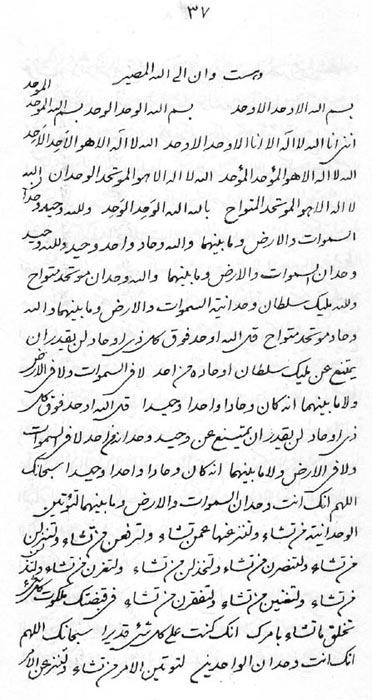 ٣٧
وبست وان الى الله المصير
بسم الله الاوحد الاوحد بسم الله الوحد الوحد بسم الله الموحد الموحد
اننى انا الله لا اله الا انا الاوحد الاوحد الله لا اله الا هو الاوحد الاوحد
الله لا اله الا هو المؤحد المؤحد الله لا اله الا هو الموتحد الوحدان الله
لا اله الا هو الموتحد المتواح بالله الله الوحد الوحد ولله وحيد وحدا
السموات والارض وما بينهما والله وحاد واحد وحيد ولله وحيد
وحدان السموات والارض وما بينهما والله وحدان موتحد متواح
ولله مليك سلطان وحدانية السموات والارض وما بينهما والله
وحاد موتحد متواح قل الله اوحد فوق كل ذى اوحاد لن يقدر ان
يمتنع عن مليك سلطان اوحاده من احد لا فى السموات ولا فى الارض
ولا ما بينهما انه كان وحادا واحدا وحيدا قل الله اوحد فوق كل
ذى اوحاد لن يقدر ان يمتنع عن وحيد وحدانه من احد لا فى السموات
ولا فى الارض ولا ما بينهما انه كان وحادا واحدا وحيدا سبحانك
اللهم انك انت وحدان السموات والارض وما بينهما لتؤتين
الوحدانية من تشاء ولتنزعنها عمن تشاء ولترفعن من تشاء ولتنزلن
من تشاء ولتنصرن من تشاء ولتخذلن من تشاء ولتعزن من تشاء ولتذلن
من تشاء ولتغنين من تشاء ولتفقرن من تشاء فى قبضتك ملكوت كل شئ
تخلق ما تشاء بامرك انك كنت على كل شئ قديرا سبحانك اللهم
انك انت وحدان الواحدين لتوتين الامر من تشاء ولتنزعن الامر